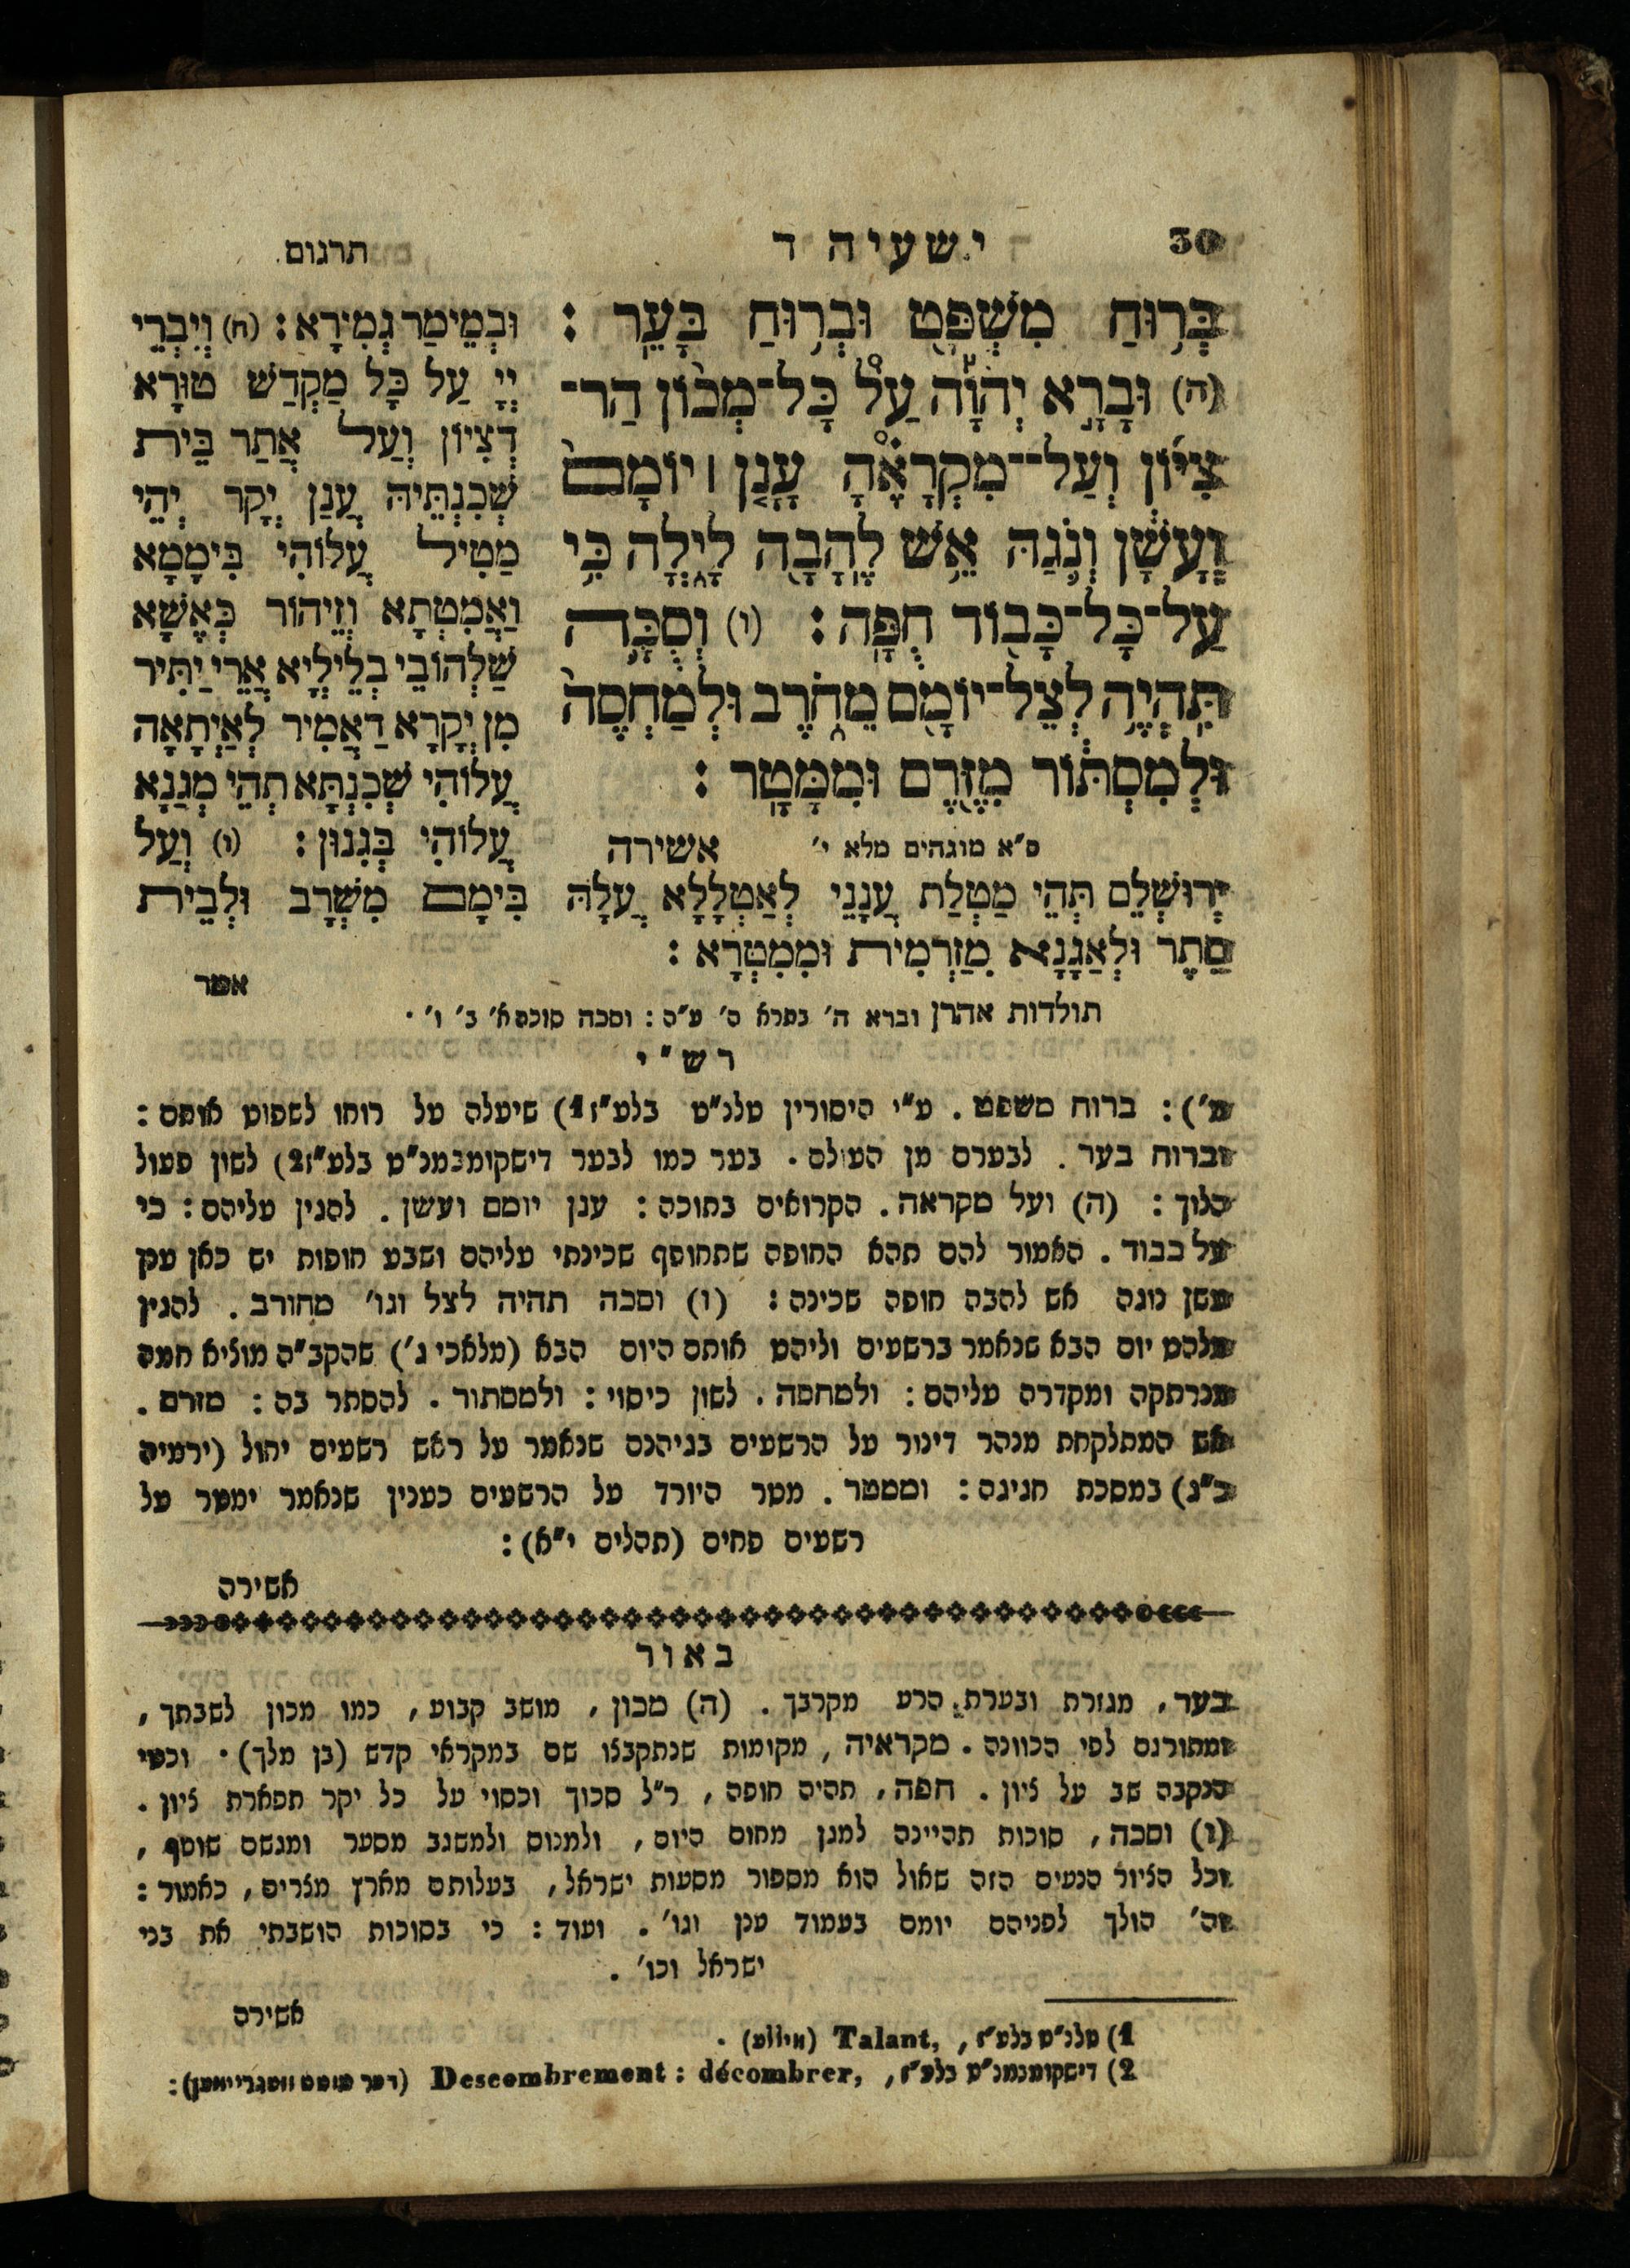 30
ישעיה ד
תרגום
בְּר֥וּחַ מִשְׁפָּ֖ט וּבְר֥וּחַ בָּעֵֽר :
(ה) וּבָרָ֣א יְהוָֹ֡ה עַל֩ כָּל־מְכ֨וֹן הַר־
צִיּ֜וֹן וְעַל־־מִקְרָאֶ֗הָ עָנָ֤ן ׀ יוֹמָם֙
וְעָשָׁ֔ן וְנֹ֛גַהּ אֵ֥שׁ לֶֽהָבָ֖ה לָ֑יְלָה כִּ֥י
עַל־כָּל־כָּב֖וֹד חֻפָּֽה : (ו) וְסֻכָּ֛ה
תִּֽהְיֶ֥ה לְצֵל־יוֹמָ֖ם מֵחֹ֑רֶב וּלְמַחְסֶה֙
וּלְמִסְתּ֔וֹר מִזֶּ֖רֶם וּמִמָּטָֽר :
ס״א מוגהים מלא י׳ אשירה
וּבְמֵימַר גְמִירָא : (ה) וְיִבְרֵי
יְיָ עַל כָּל מַקְדַשׁ טוּרָא
דְצִיוֹן וְעַל אֲתַר בֵּית
שְׁכִנְתֵּיהּ עֲנַן יְקָר יְהֵי
מַטִיל עֲלוֹהִי בִּימָמָא
וַאֲמִטְתָא וְזֵיהוֹר כְּאֶשָׁא
שַׁלְהוֹבֵי בְלֵילְיָא אֲרֵי יַתִּיר
מִן יְקָרָא דַאֲמִיר לְאַיְתָאָה
עֲלוֹהִי שְׁכִנְתָּא תְהֵי מְגַנָא
עֲלוֹהִי בְּגִנוּן : (ו) וְעַל
יְרוּשְׁלֵם תְּהֵי מַטְלַת עֲנָנֵי לְאַטְלָלָא עֲלָהּ בִּימָם מִשְׁרָב וּלְבֵית
סַתֶר וּלְאַגָנָא מִזַרְמִית וּמִמִטְרָא :
אמר
תולדות אהרן וברא ה׳ בתרא ס׳ ע״ה : וסכה סוכה א׳ ב׳ ו׳ .
רש״י
מ׳) : ברוח משפט . ע״י היסורין טלנ״ט בלע״ז 1) שיעלה על רוחו לשפוט אותם :
וברוח בער . לבערם מן העולם . בער כמו לבער דישקומבמנ״ט בלע״ז 2) לשון פעול
הלוך : (ה) ועל מקראה . הקרואים בתוכה : ענן יומם ועשן . להגין עליהם : כי
על כבוד . האמור להם תהא החופה שתחופף שכינתי עליהם ושבע חופות יש כאן ענן
עשן נוגה אש להבה חופה שכינה : (ו) וסכה תהיה לצל וגו׳ מחורב . להגין
מלהט יום הבא שנאמר ברשעים וליהט אותם היום הבא (מלאכי ג׳) שהקב״ה מוציא חמה
מנרתקה ומקדרה עליהם : ולמחסה . לשון כיסוי : ולמסתור . להסתר בה : מזרם .
אש המתלקחת מנהר דינור על הרשעים בגיהנם שנאמר על ראש רשעים יחול (ירמיה
כ״ג) במסכת חגיגה : וממטר . מטר היורד על הרשעים כענין שנאמר ימטר על
רשעים פחים (תהלים י״א) :
אשירה
באור
בער , מגזרת ובערת הרע מקרבך . (ה) מכון , מושב קבוע , כמו מכון לשבתך ,
ומתורגם לפי הכוונה . מקראיה , מקומות שנתקבצו שם במקראי קדש (בן מלך) . וכנוי
הנקבה שב על ציון . חפה , תהיה חופה , ר״ל סכוך וכסוי על כל יקר תפארת ציון .
(ו) וסכה , סוכות תהיינה למגן מחום היום , ולמנוס ולמשגב מסער ומגשם שוטף ,
וכל הציור הנעים הזה שאול הוא מספור מסעות ישראל , בעלותם מארץ מצרים , כאמור :
וה׳ הולך לפניהם יומם בעמוד ענן וגו׳ . ועוד : כי בסוכות הושבתי את בני
ישראל וכו׳ .
אשירה
1) טלנ״ט בלע״ז , Talant, (וויללע) .
2) דישקומבמנ״ט בלע״ז , Descombrement : décombrer,